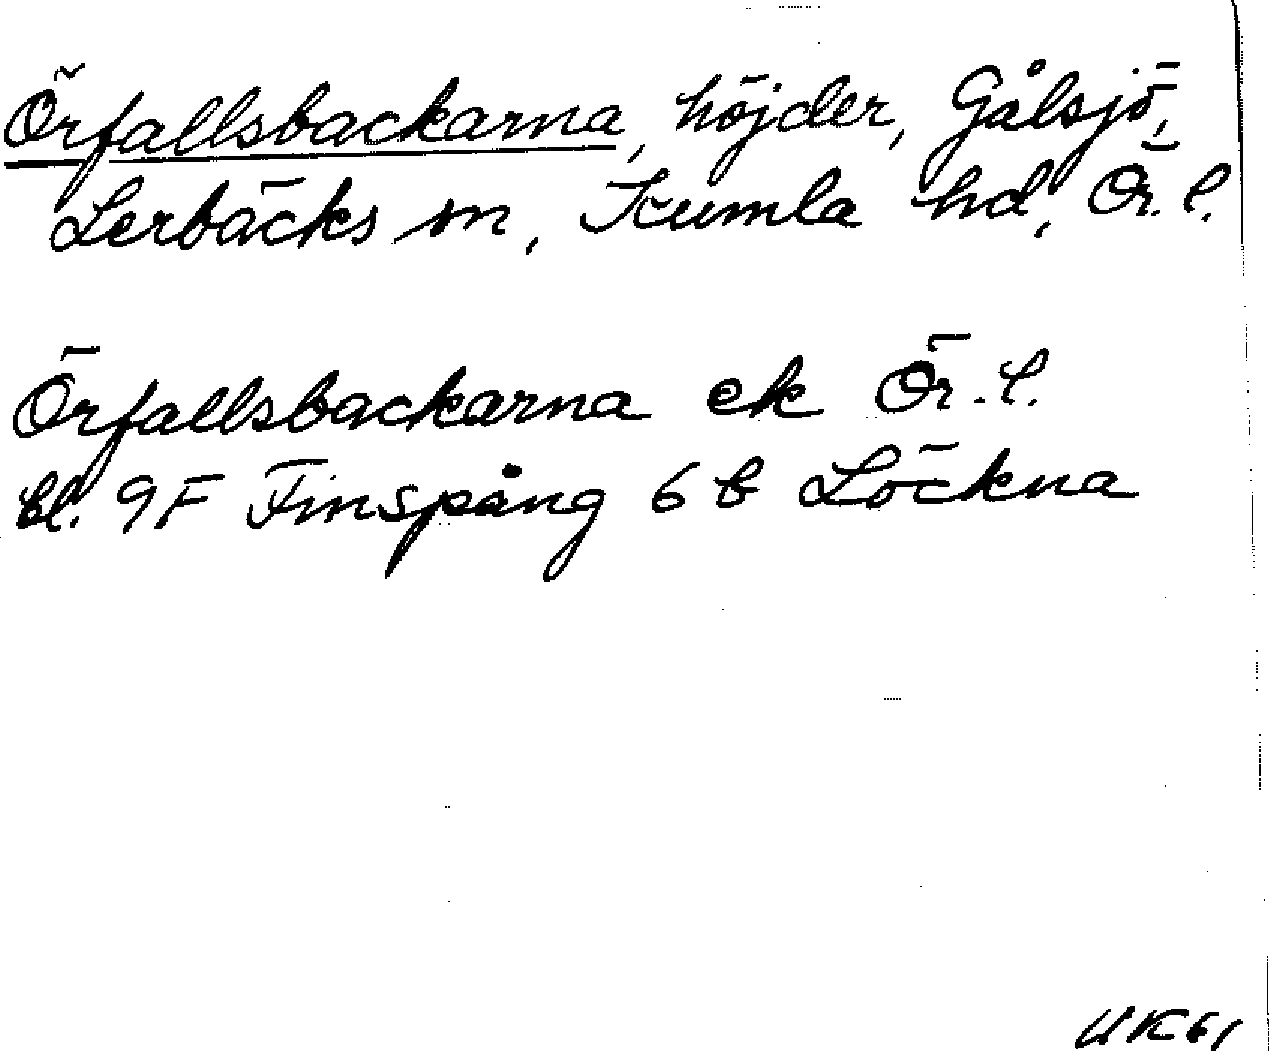 Örfallsbackarna, höjder, Gålsjö,
Lerbäcks sn, Kumla hd, Ör. l.
Örfallsbackarna ek Ör. l.
bl. 9F Finspång 6 b Löckna
UK61